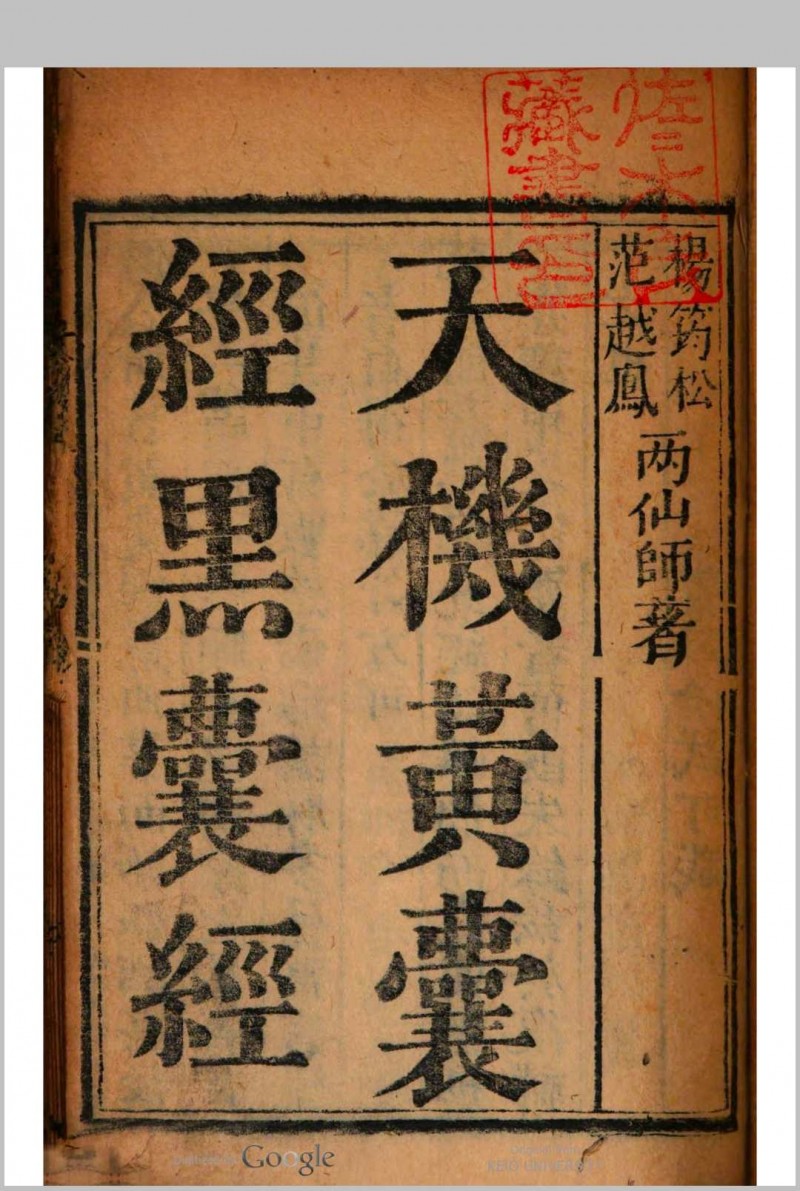 佐々木氏
藏書印
楊筠松
范越鳳
两仙師著
天機黃囊
經黒囊經
Digitized by Google
Original from
KEIO UNIVERSITY